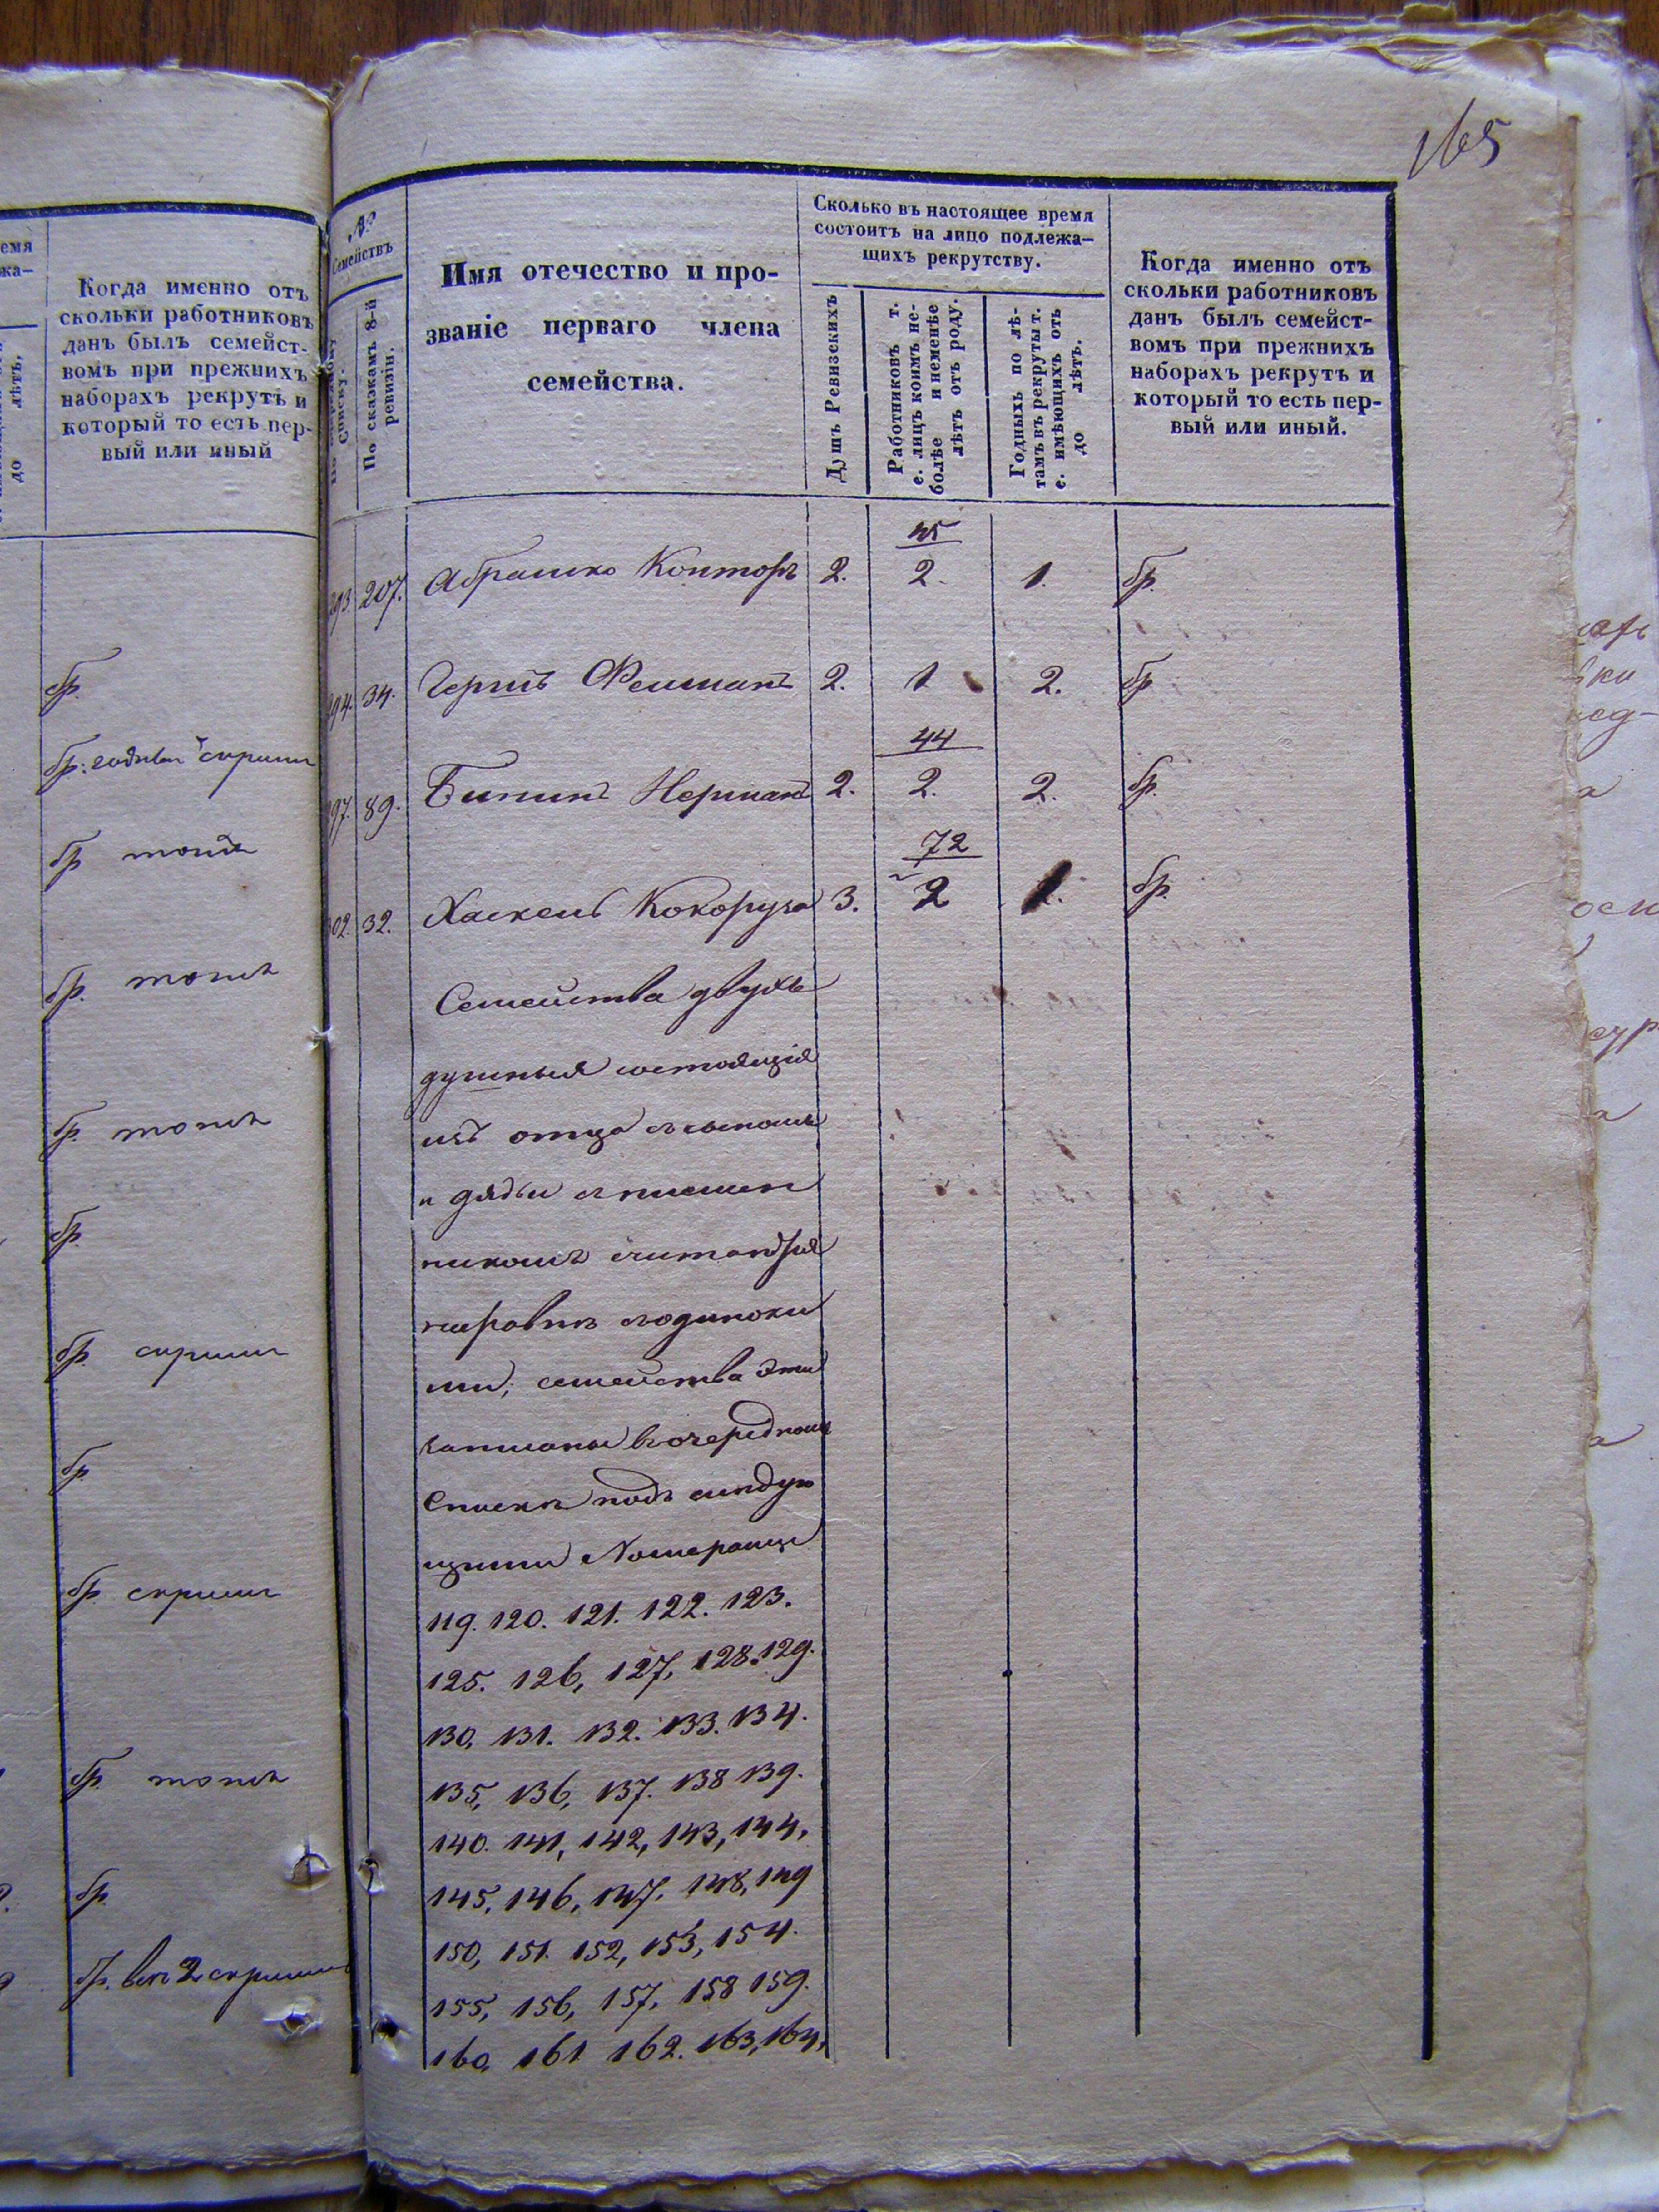 емя
жа-
лѣтъ,
до
Когда именно отъ
скольки работниковъ
данъ былъ семейст-
вомъ при прежнихъ
наборахъ рекрутъ и
который то есть пер-
вый или иный
бр.
бр.
бр
бр.
бр.
бр.
бр.
бр.
бр.
бр.
бр.
бр.
165
№
Семействъ
Списку.
По сказкамъ 8-й
ревизіи.
Имя отечество и про-
званіе перваго члена
семейства.
Сколько въ настоящее время
состоитъ на лицо подлежа-
щихъ рекрутству.
Душъ Ревизскихъ
Работниковъ т.
е. лицъ коимъ не-
болѣе и неменѣе
лѣтъ отъ роду.
Годныхъ по лѣ-
тамъ въ рекруты т.
е. имѣющихъ отъ
до лѣтъ.
Когда именно отъ
скольки работниковъ
данъ былъ семейст-
вомъ при прежнихъ
наборахъ рекрутъ и
который то есть пер-
вый или иный.
45
207. Абрашко Конторъ 2. 2. 1. бр.
34. Гершъ 2. 1 2. бр
44
89. 2. 2. 2. бр.
72
32. Хаскель Кокоруза 3. 2 бр.
Семейства двухъ
душныя состоящія
изъ отца съ сыномъ
и дяди съ племян
никомъ
наровнѣ съ одиноки
ми, семейства эти
записаны въ очередномъ
Спискѣ подъ слѣдую
щими Номерами
119. 120. 121. 122. 123.
125. 126, 127, 128. 129.
130, 131. 132. 133. 134.
135, 136, 137. 138 139.
140. 141, 142, 143, 144,
145, 146, 147, 148, 149
150, 151. 152, 153, 154.
155, 156, 157, 158 159.
160, 161 162. 163, 164,